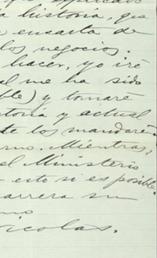 a historia, que
exacta de
los negocios.
hacer, yo iré
el me ha sido
ble) y tomaré
toria y actual
te los mandaré
rno. Mientras,
el Ministerio
esto si es posible
arrera su
mo
icolas.